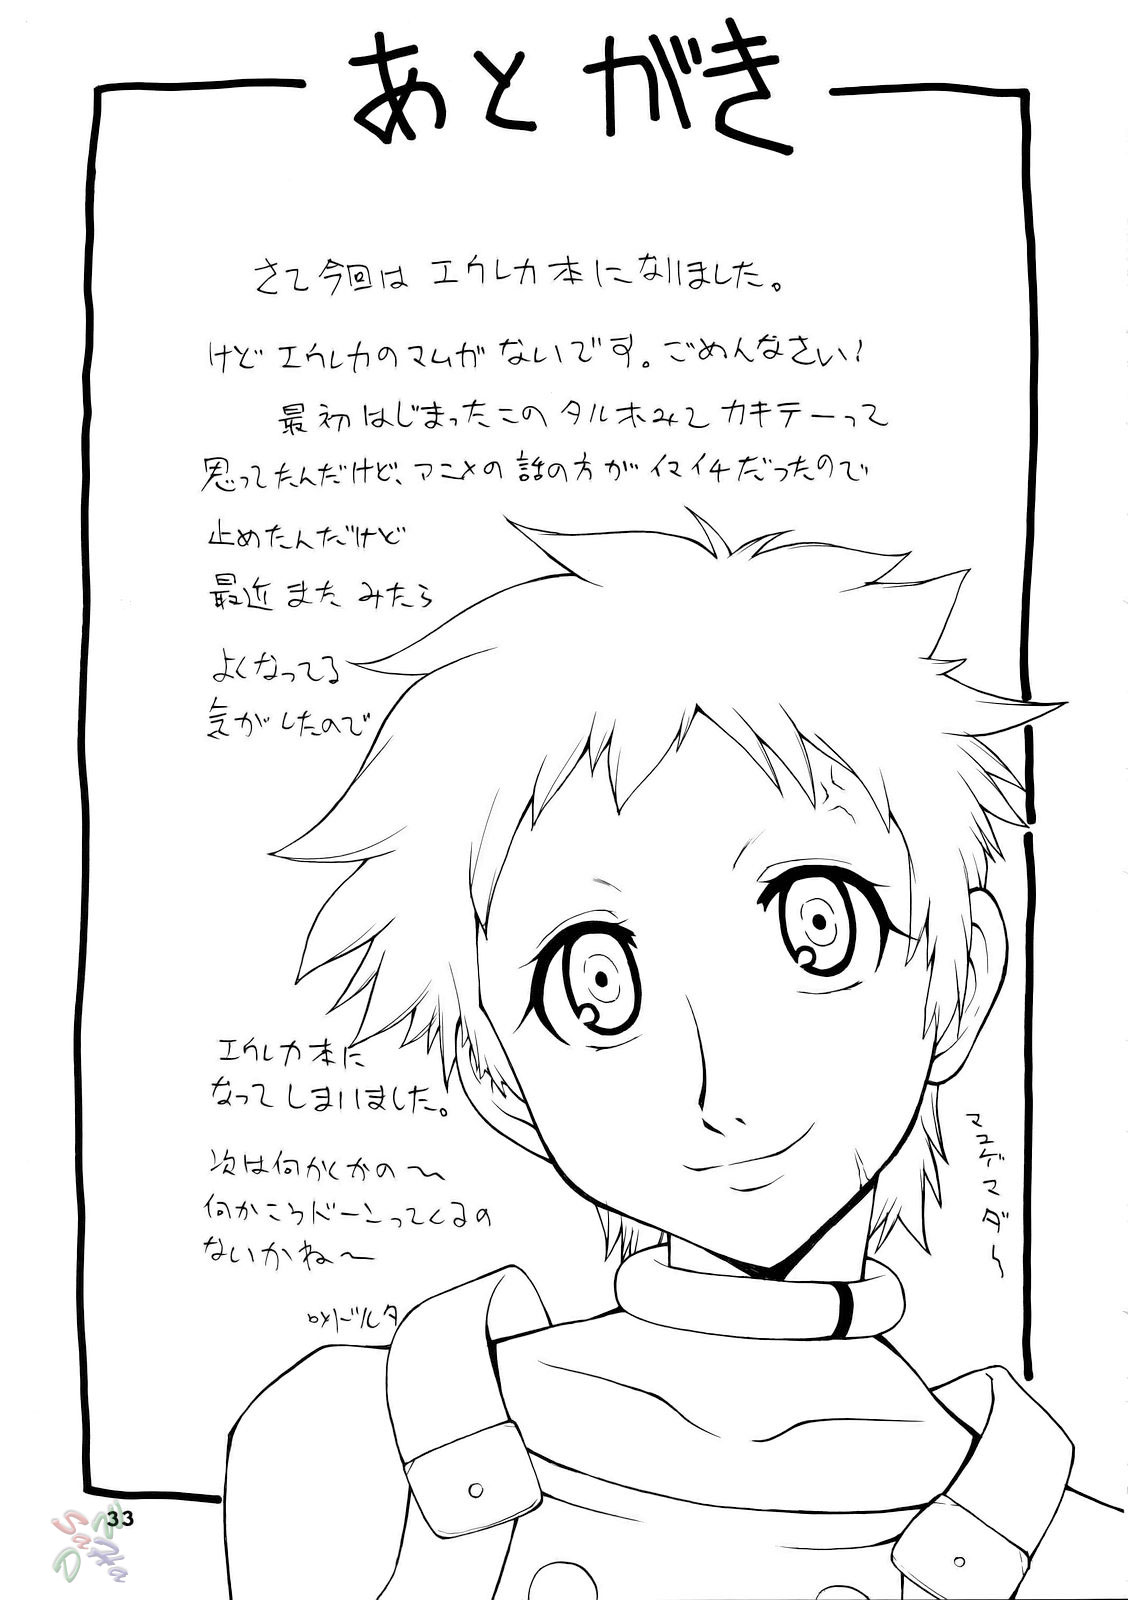 あとがき
さて今回は エウレカ本になりました。
けど エウレカのマムガ ないです。ごめんなさい!
最初 はじまったこの タルホみて カキテーって
思ってたんだけど、アニメの 話の方が イマイチだったので
止めたんだけど
最近 また みたら
よくなってる
気がしたので
エウレカ本に
なってしまいました。
次は何かくかの〜
何かこうドーンってくるの
ないかね〜
マユゲマダ〜
33